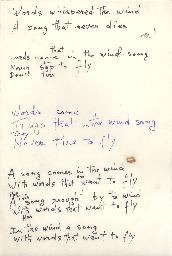 Words whispered the wind
A song that never dies
that
words in the wind song
Never stop to fly
Don't
Words come
that in the wind song
They
Never time to fly
A song comes in the wind
With words that want to fly
A song brought by the wind
With words that want to fly
In the wind a song
With words that want to fly